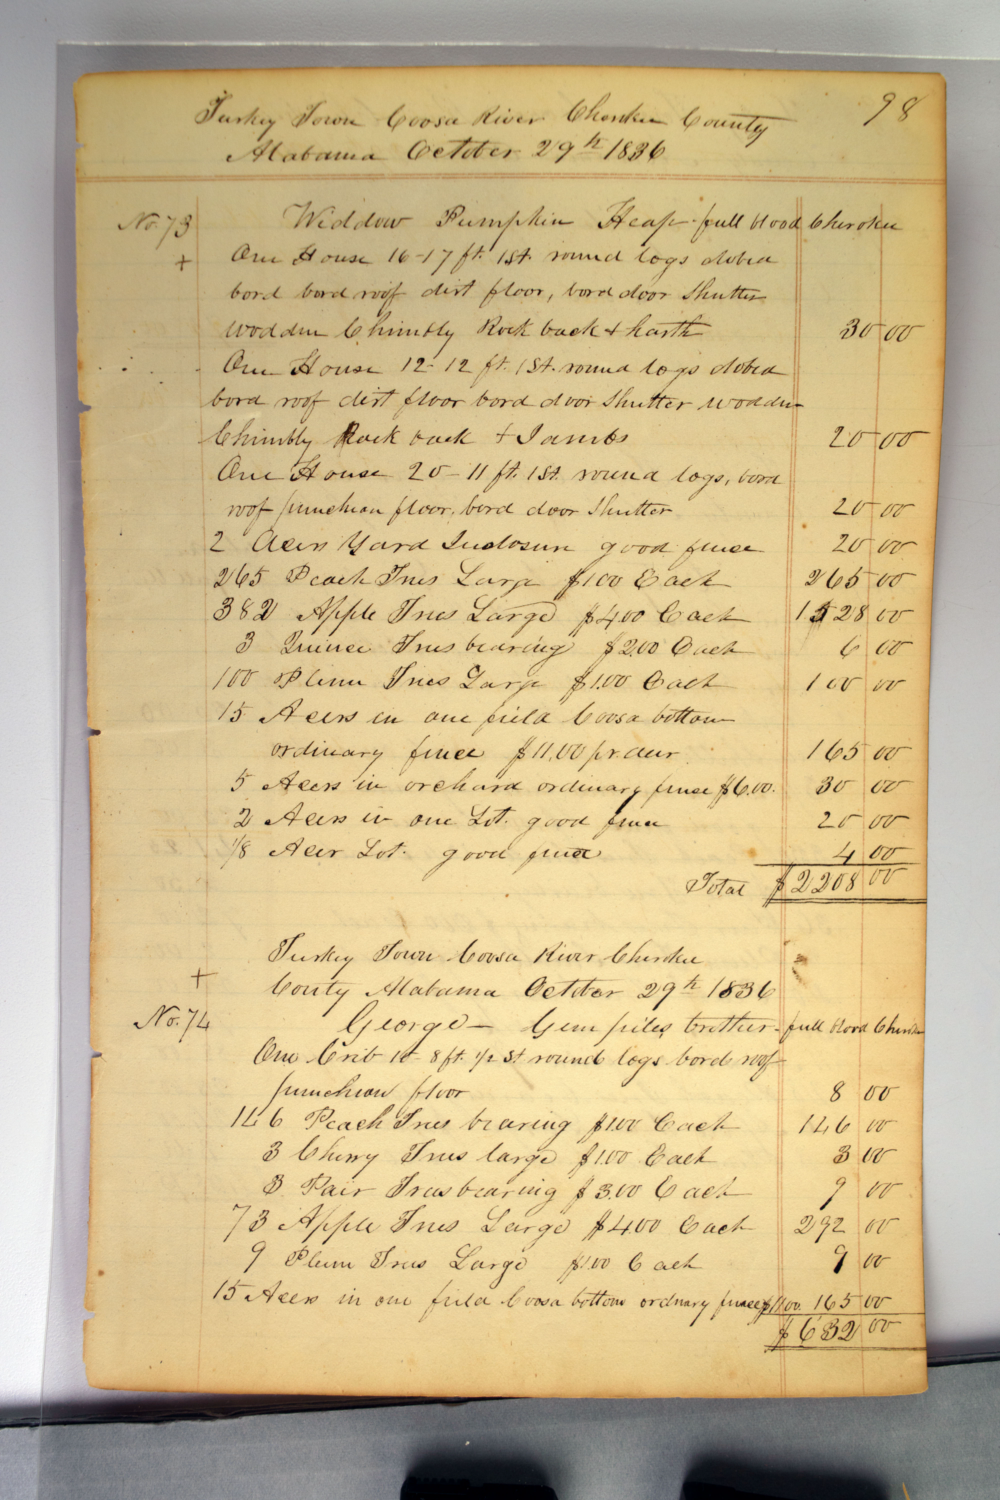 98
Turkey Town Coosa River Cherokee County
Alabama October 29th 1836
No. 73 Widdow Pumpkin Heap - full blood Cherokee
+ One House 16-17 ft. 1 St. round logs dobed
bord bord roof dirt floor, bord door Shutter
wodden Chimbly Rock back & harth 30 00
One House 12-12 ft. 1 St. round logs dobed
bord roof dirt floor bord door Shutter wodden
Chimbly Rock back & Jambs 20 00
One House 20-11 ft. 1 St. round logs, bord
roof puncheon floor, bord door Shutter 20 00
2 Acers Yard Inclosure good fence 20 00
265 Peach Trees Large $1.00 Each 265 00
382 Apple Trees Large $4.00 Each 1528 00
3 Quince Trees bearing $2.00 Each 6 00
100 Plum Trees Large $1.00 Each 100 00
15 Acers in one field Coosa bottom
ordinary fence $11.00 pr acer 165 00
5 Acers in orchard ordinary fence $6.00. 30 00
2 Acers in one Lot. good fence 20 00
1/8 Acer Lot. good fence 4 00
Total $2208 00
Turkey Town Coosa River Cherokee
+ Conty Alabama October 29th 1836
No. 74 George - brother - full blood Cherokee
One Crib 10-8 ft. 1/2 St round logs bord roof
puncheon floor 8 00
146 Peach Trees bearing $1.00 Each 146 00
3 Cherry Trees large $1.00 Each 3 00
3 Pair Trees bearing $3.00 Each 9 00
73 Apple Trees Large $4.00 Each 292 00
9 Plum Trees Large $1.00 Each 9 00
15 Acers in one field Coosa bottom ordnary fence $11.00. 165 00
$632 00